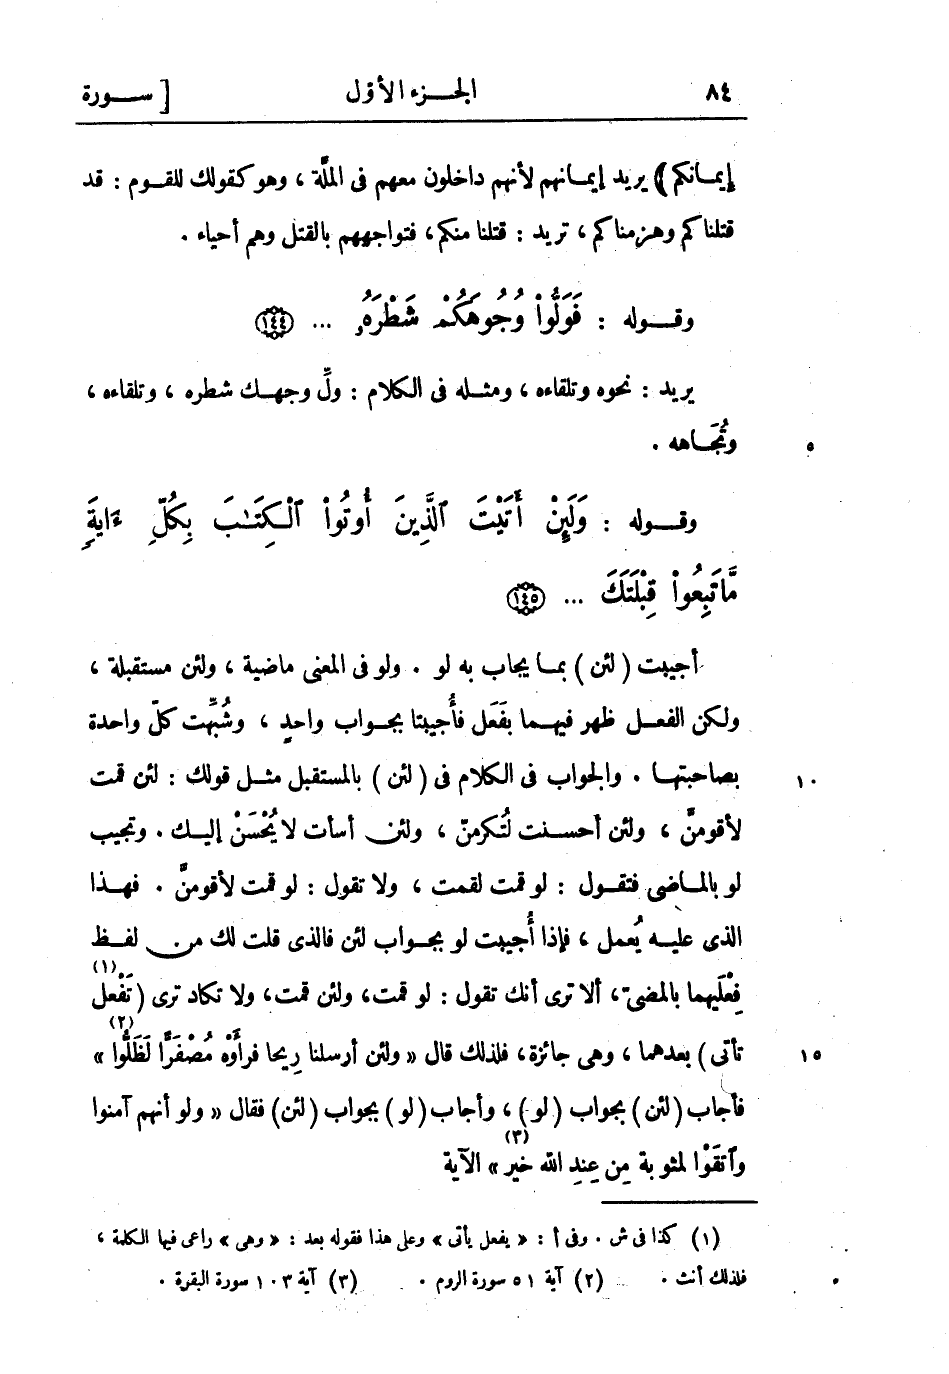 ٨٤ الجزء الأول [ سورة
إيمانكم ) يريد إيمانهم لأنهم داخلون معهم فى الملَّة ، وهو كقولك للقوم : قد
قتلناكم وهزمناكم ، تريد : قتلنا منكم، فتواجههم بالقتل وهم أحياء .
وقوله : فَوَلُّواْ وُجُوهَكُمْ شَطْرَهُۥ ... (١٤٤)
يريد : نحوه وتلقاءه ، ومثله فى الكلام : ولِّ وجهك شطره ، وتلقاءه ،
٥ وتُجَاهه .
وقوله : وَلَئِنْ أَتَيْتَ ٱلَّذِينَ أُوتُواْ ٱلْكِتَٰبَ بِكُلِّ ءَايَةٍ
مَّاتَبِعُواْ قِبْلَتَكَ ... (١٤٥)
أجيبت ( لئن ) بما يجاب به لو . ولو فى المعنى ماضية ، ولئن مستقبلة ،
ولكن الفعل ظهر فيهما بفَعَل فأُجيبتا بجواب واحدٍ ، وشُبِّهت كلّ واحدة
١٠ بصاحبتها . والجواب فى الكلام فى ( لئن ) بالمستقبل مثل قولك : لئن قمت
لأقومنَّ ، ولئن أحسنت لتُكرمنّ ، ولئن أسأت لا يُحْسَنْ إليك . وتجيب
لو بالماضى فتقول : لو قمت لقمت ، ولا تقول : لو قمت لأقومنَّ . فهذا
الذى عليه يُعمل ، فإذا أُجيبت لو بجواب لئن فالذى قلت لك من لفظ
فِعْليهما بالمضىّ، ألا ترى أنك تقول : لو قمت، ولئن قمت، ولا تكاد ترى ( تَفْعل (١)
١٥ تأتى ) بعدهما ، وهى جائزة، فلذلك قال « ولئن أرسلنا رِيحا فرأَوْه مُصْفَرًّا لَظَلُّوا » (٢)
فأجاب (لئن) بجواب (لو) ، وأجاب (لو) بجواب (لئن) فقال « ولو أنهم آمنوا
وٱتقَوْا لمثوبة مِن عِندِ الله خير » الآية (٣)
(١) كذا فى ش . وفى أ : « يفعل يأتى » وعلى هذا فقوله بعد : « وهى » راعى فيها الكلمة ،
فلذلك أنث . (٢) آية ٥١ سورة الروم . (٣) آية ١٠٣ سورة البقرة .